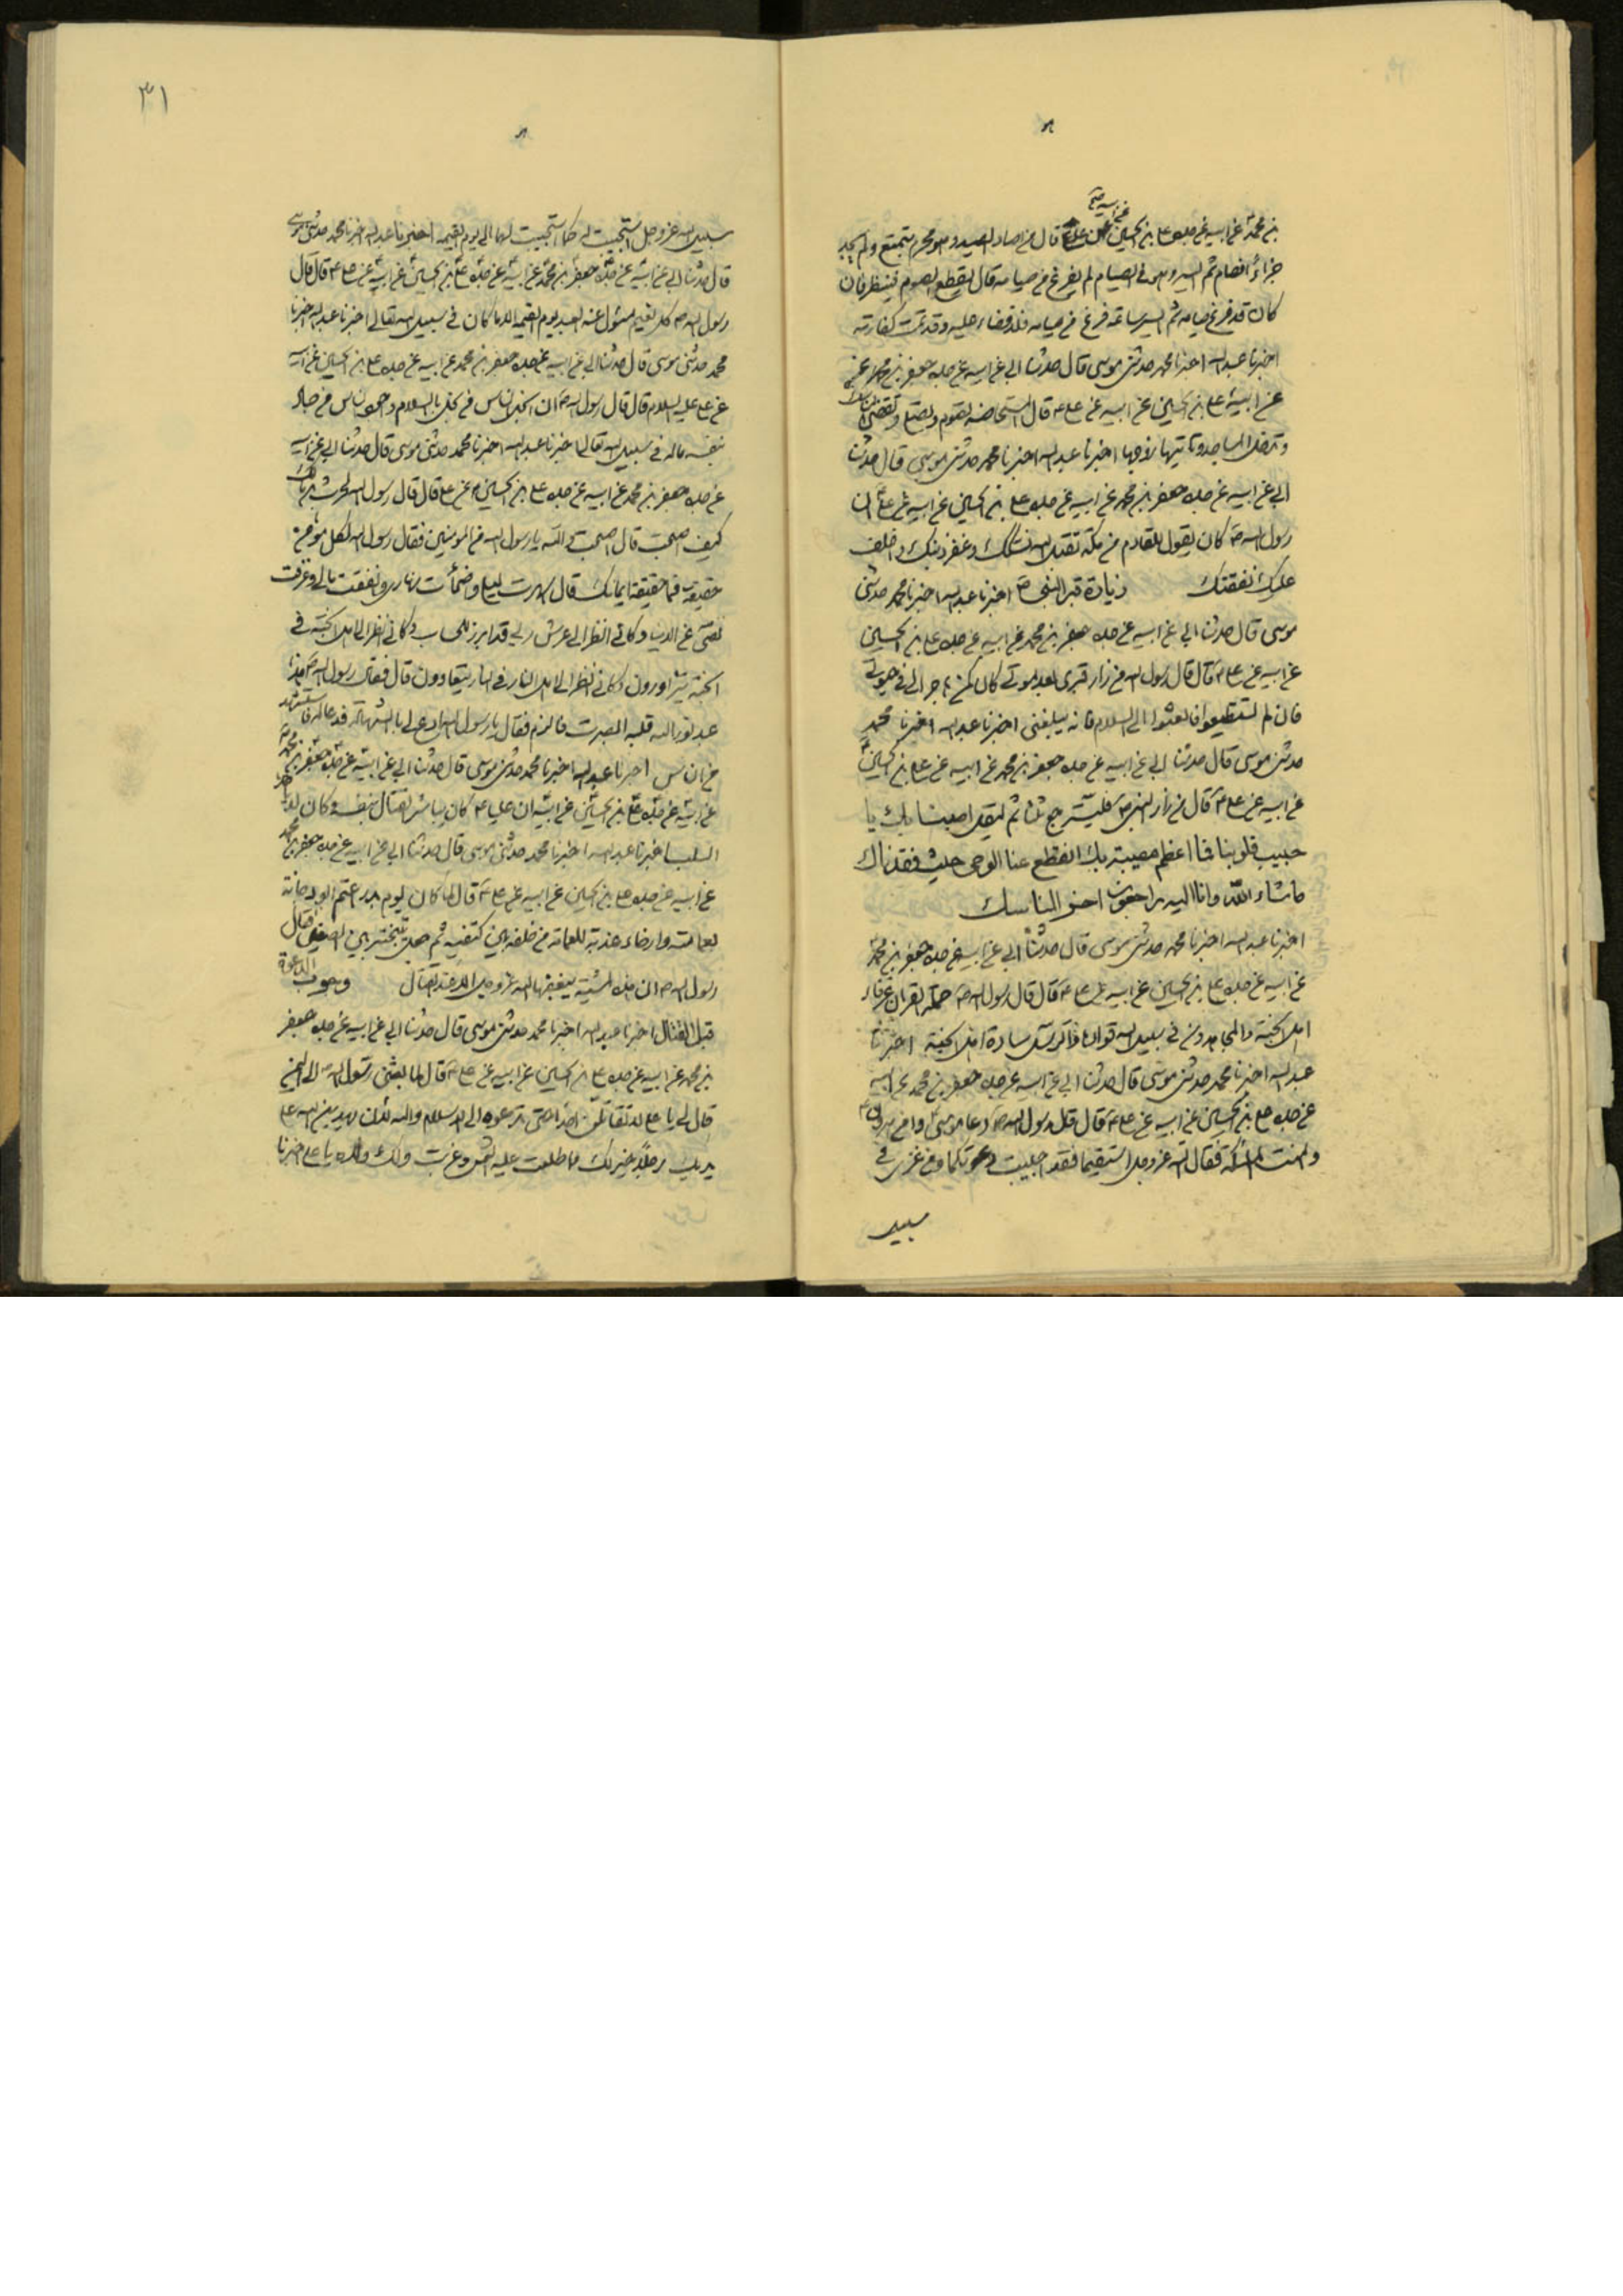 بن محمد عن ابيه عن جده على بن الحسين عن ابيه عن على قال من اصاد الصيد وهو محرم متمتع ولم يجد
جزاء فصام ثم ايسر وهو فى الصيام لم يفرغ من صيامه قال يقطع الصوم فينظر فان
كان قد فرغ صيامه ثم ايسر ساعة فرغ من صيامه فلا قضاء عليه وقد تمت كفارته
اخبرنا عبد الله اخبرنا محمد حدثنى موسى قال حدثنا ابى عن ابيه عن جده جعفر بن محمد عن
عن ابيه على بن الحسين عن ابيه عن على ع قال المستحاضه تقوم وتصلى وتقضى المناسك
وتدخل المساجد وتاتيها زوجها اخبرنا عبد الله اخبرنا محمد حدثنى موسى قال حدثنا
ابى عن ابيه عن جده جعفر بن محمد عن ابيه عن جده على بن الحسين عن ابيه عن على ان
رسول الله ص كان يقول للقادم من مكه تقبل الله نسكك وغفر ذنبك واخلف
عليك نفقتك زيادة قبر النبى ص اخبرنا عبد الله اخبرنا محمد حدثنى
موسى قال حدثنا ابى عن ابيه عن جده جعفر بن محمد عن ابيه عن جده على بن الحسين
عن ابيه عن على ع قال قال رسول الله من زار قبرى بعد موتى كان كمن هاجر الى فى حيوتى
فان لم تستطيعوا فابعثوا الى السلام فانه يبلغنى اخبرنا عبد الله اخبرنا محمد
حدثنى موسى قال حدثنا ابى عن ابيه عن جده جعفر بن محمد عن ابيه عن على بن الحسين
عن ابيه عن على ع قال من زار النبى ص فليسترجع ثلثا ثم ليقل اصبنا بك يا
حبيب قلوبنا فما اعظم مصيبتنا بك انقطع عنا الوحى حيث فقدناك
ما شاء الله وانا اليه راجعون اخر المناسك
اخبرنا عبد الله اخبرنا محمد حدثنى موسى قال حدثنا ابى عن ابيه عن جده جعفر بن محمد
عن ابيه عن جده على بن الحسين عن ابيه عن على ع قال قال رسول الله ص حملة القران عرفاء
اهل الجنة والمجاهدون فى سبيل الله قوادها والرسل سادة اهل الجنة اخبرنا
عبد الله اخبرنا محمد حدثنى موسى قال حدثنا ابى عن ابيه عن جده جعفر بن محمد عن ابيه
عن جده على بن الحسين عن ابيه عن على ع قال قال رسول الله ص دعا موسى وامن هرون
وامنت الملائكة فقال الله عز وجل استقيما فقد اجيبت دعوتكما ومن غزى فى
سبيل
٣١
سبيل الله عز وجل استجبت له كما استجبت لهما الى يوم القيمه اخبرنا عبد الله اخبرنا محمد حدثنى موسى
قال حدثنا ابى عن ابيه عن جده جعفر بن محمد عن ابيه عن جده على بن الحسين عن ابيه عن على ع قال قال
رسول الله ص كل نعيم مسئول عنه العبد يوم القيمه الا ما كان فى سبيل الله تعالى اخبرنا عبد الله اخبرنا
محمد حدثنى موسى قال حدثنا ابى عن ابيه عن جده جعفر بن محمد عن ابيه عن جده على بن الحسين عن ابيه
عن على عليه السلام قال قال رسول الله ص ان ابخل الناس من بخل بالسلام واجود الناس من جاد
بنفسه وماله فى سبيل الله تعالى اخبرنا عبد الله اخبرنا محمد حدثنى موسى قال حدثنا ابى عن ابيه
عن جده جعفر بن محمد عن ابيه عن جده على بن الحسين عن على قال قال رسول الله لحرث بن مالك
كيف اصبحت قال اصبحت والله يا رسول الله من المومنين فقال رسول الله لكل مومن
حقيقه فما حقيقة ايمانك قال اسهرت ليلى واضمأت نهارى وانفقت مالى وعزفت
نفسى عن الدنيا وكانى انظر الى عرش ربى قد ابرز للحساب وكانى انظر الى اهل الجنة فى
الجنة يتزاورون وكانى انظر الى اهل النار فى النار يتعاوون قال فقال رسول الله ص هذا
عبد نور الله قلبه ابصرت فالزم فقال يا رسول الله ادع لى بالشهادة فدعا له فاستشهد
من الناس اخبرنا عبد الله اخبرنا محمد حدثنى موسى قال حدثنا ابى عن ابيه عن جده جعفر بن محمد
عن ابيه عن جده على بن الحسين عن ابيه ان عليا ع كان يباشر القتال بنفسه وكان لا ياخذ
السلب اخبرنا عبد الله اخبرنا محمد حدثنى موسى قال حدثنا ابى عن ابيه عن جده جعفر بن محمد
عن ابيه عن جده على بن الحسين عن ابيه عن على ع قال لما كان يوم بدر اعتم ابو دجانة
بعمامته وارخاء عذبة للعمامة من خلفه بين كتفيه ثم جعل يتبختر بين الصفين فقال
رسول الله ص ان هذه لمشية يبغضها الله عز وجل الا عند القتال وجوب الدعوة
قبل القتال اخبرنا عبد الله اخبرنا محمد حدثنى موسى قال حدثنا ابى عن ابيه عن جده جعفر
بن محمد عن ابيه عن جده على بن الحسين عن ابيه عن على ع قال لما بعثنى رسول الله ص الى اليمن
قال لى يا على لا تقاتلن احدا حتى تدعوه الى الاسلام والله لئن يهدين الله على
يديك رجلا خير لك مما طلعت عليه الشمس وغربت ولك ولاه يا على اخبرنا